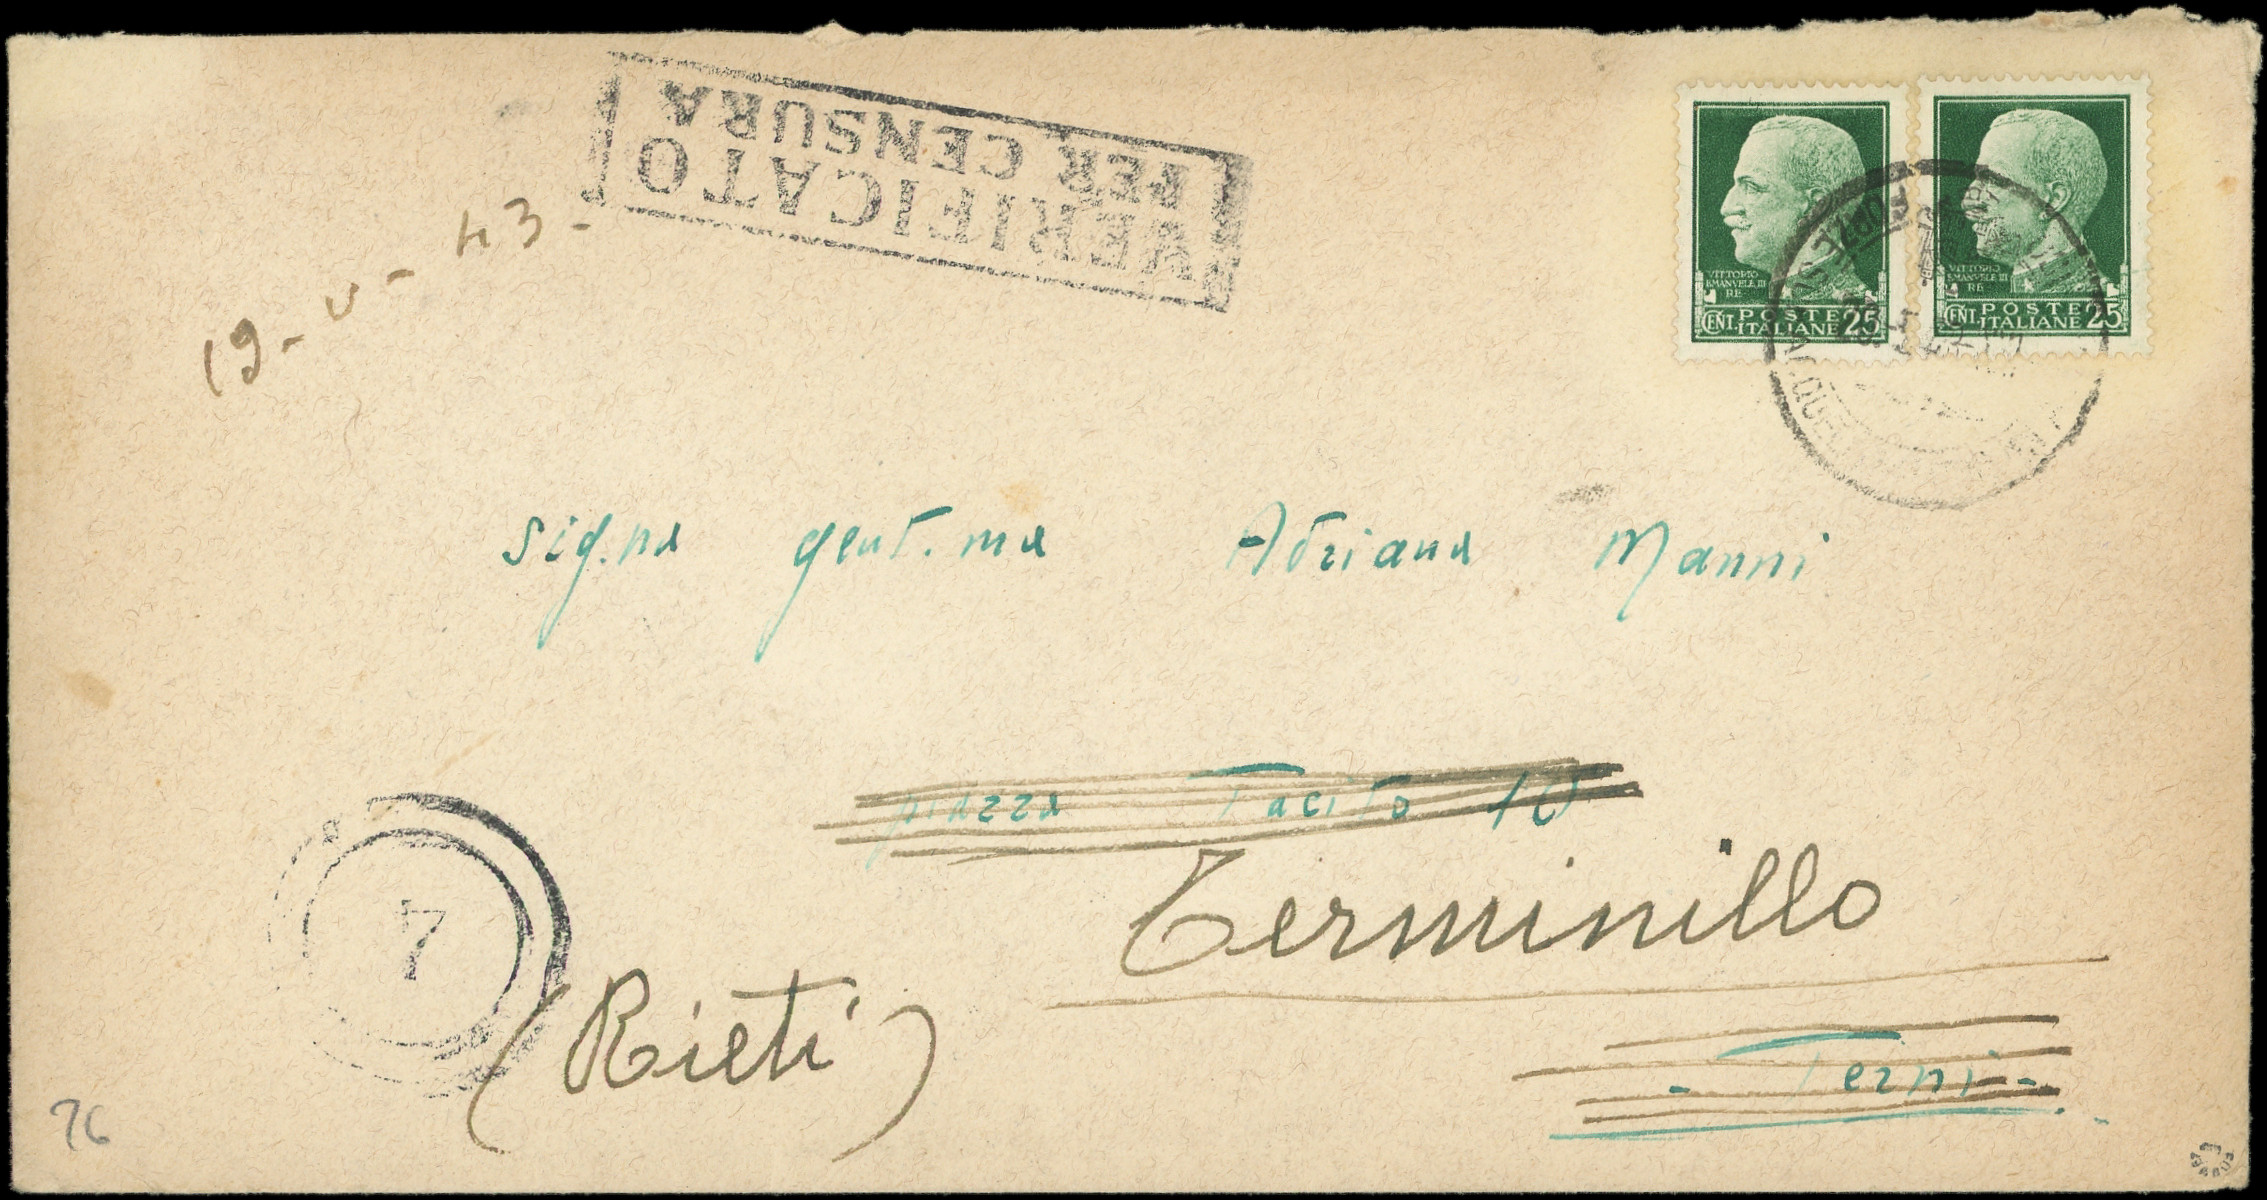 VERIFICATO
PER CENSURA
19-V-43-
VITTORIO
EMANVELE III
RE
CENT. POSTE
ITALIANE 25
VITTORIO
EMANVELE III
RE
CENT. POSTE
ITALIANE 25
Sig.na gent.ma Adriana Manni
piazza Tacito 10
Terminillo
7
(Rieti)
- Terni -
76